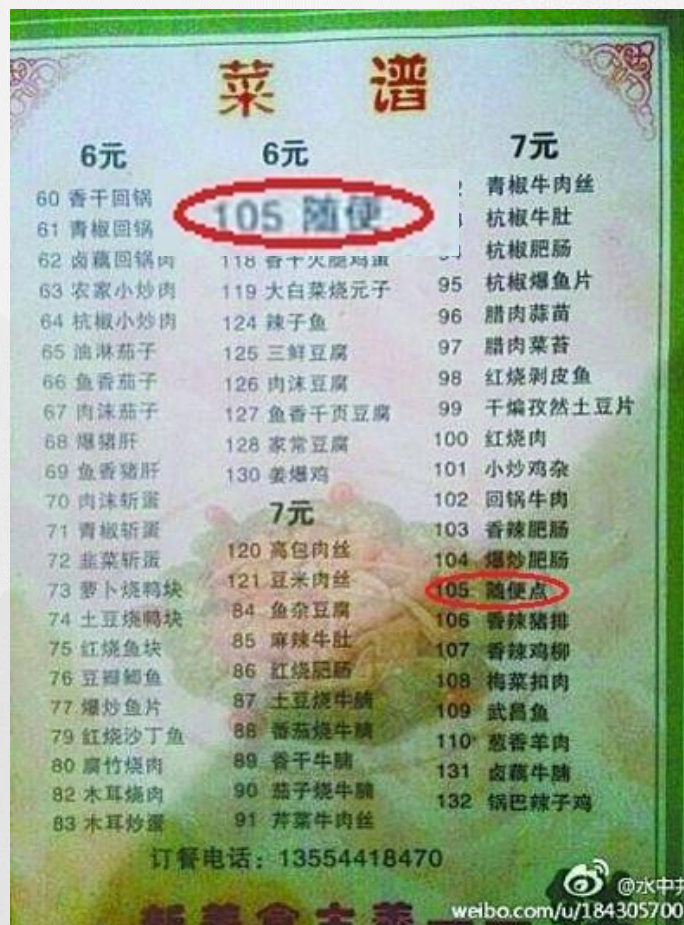 菜 谱
6元
60 香干回锅
61 青椒回锅
62 卤藕回锅肉
63 农家小炒肉
64 杭椒小炒肉
65 油淋茄子
66 鱼香茄子
67 肉沫茄子
68 爆猪肝
69 鱼香猪肝
70 肉沫斩蛋
71 青椒斩蛋
72 韭菜斩蛋
73 萝卜烧鸭块
74 土豆烧鸭块
75 红烧鱼块
76 豆瓣鲫鱼
77 爆炒鱼片
79 红烧沙丁鱼
80 腐竹烧肉
82 木耳烧肉
83 木耳炒蛋
6元
105 随便
118 香干火腿鸡蛋
119 大白菜烧元子
124 辣子鱼
125 三鲜豆腐
126 肉沫豆腐
127 鱼香千页豆腐
128 家常豆腐
130 姜爆鸡
7元
120 高包肉丝
121 豆米肉丝
84 鱼杂豆腐
85 麻辣牛肚
86 红烧肥肠
87 土豆烧牛腩
88 番茄烧牛腩
89 香干牛腩
90 茄子烧牛腩
91 芹菜牛肉丝
7元
青椒牛肉丝
杭椒牛肚
杭椒肥肠
95 杭椒爆鱼片
96 腊肉蒜苗
97 腊肉菜苔
98 红烧剥皮鱼
99 干煸孜然土豆片
100 红烧肉
101 小炒鸡杂
102 回锅牛肉
103 香辣肥肠
104 爆炒肥肠
105 随便点
106 香辣猪排
107 香辣鸡柳
108 梅菜扣肉
109 武昌鱼
110 葱香羊肉
131 卤藕牛腩
132 锅巴辣子鸡
订餐电话：13554418470
@水中
weibo.com/u/184305700